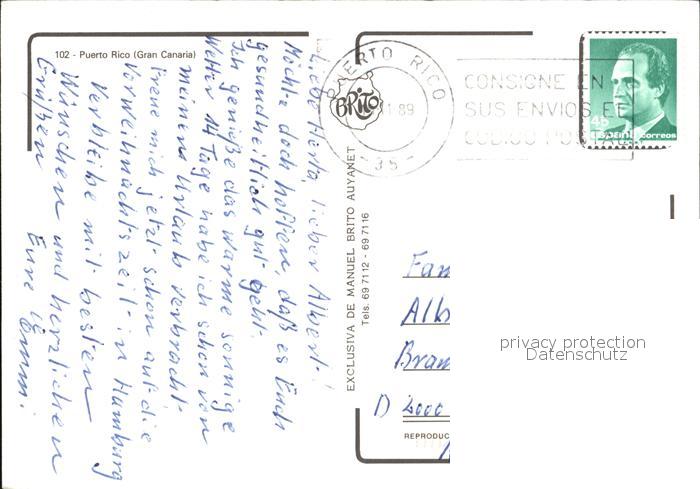 102 - Puerto Rico (Gran Canaria)
Liebe Herta, lieber Albert!
Möchte doch hoffen, daß es Euch
gesundheitlich gut geht.
Ich genieße das warme sonnige
Wetter 14 Tage habe ich schon von
meinem Urlaub verbracht.
Freue mich jetzt schon auf die
Vorweihnachtszeit in Hamburg
Verbleibe mit besten
Wünschen und herzlichen
Grüßen Eure
EXCLUSIVA DE MANUEL BRITO AUYANET
Tels. 69 7112 - 69 7116
BRITO
PUERTO RICO
89
-35-
CONSIGNE EN
SUS ENVIOS EL
CODIGO POSTAL
48
España correos
Fam
Alb
Bram
D 2000
REPRODUC
privacy protection
Datenschutz